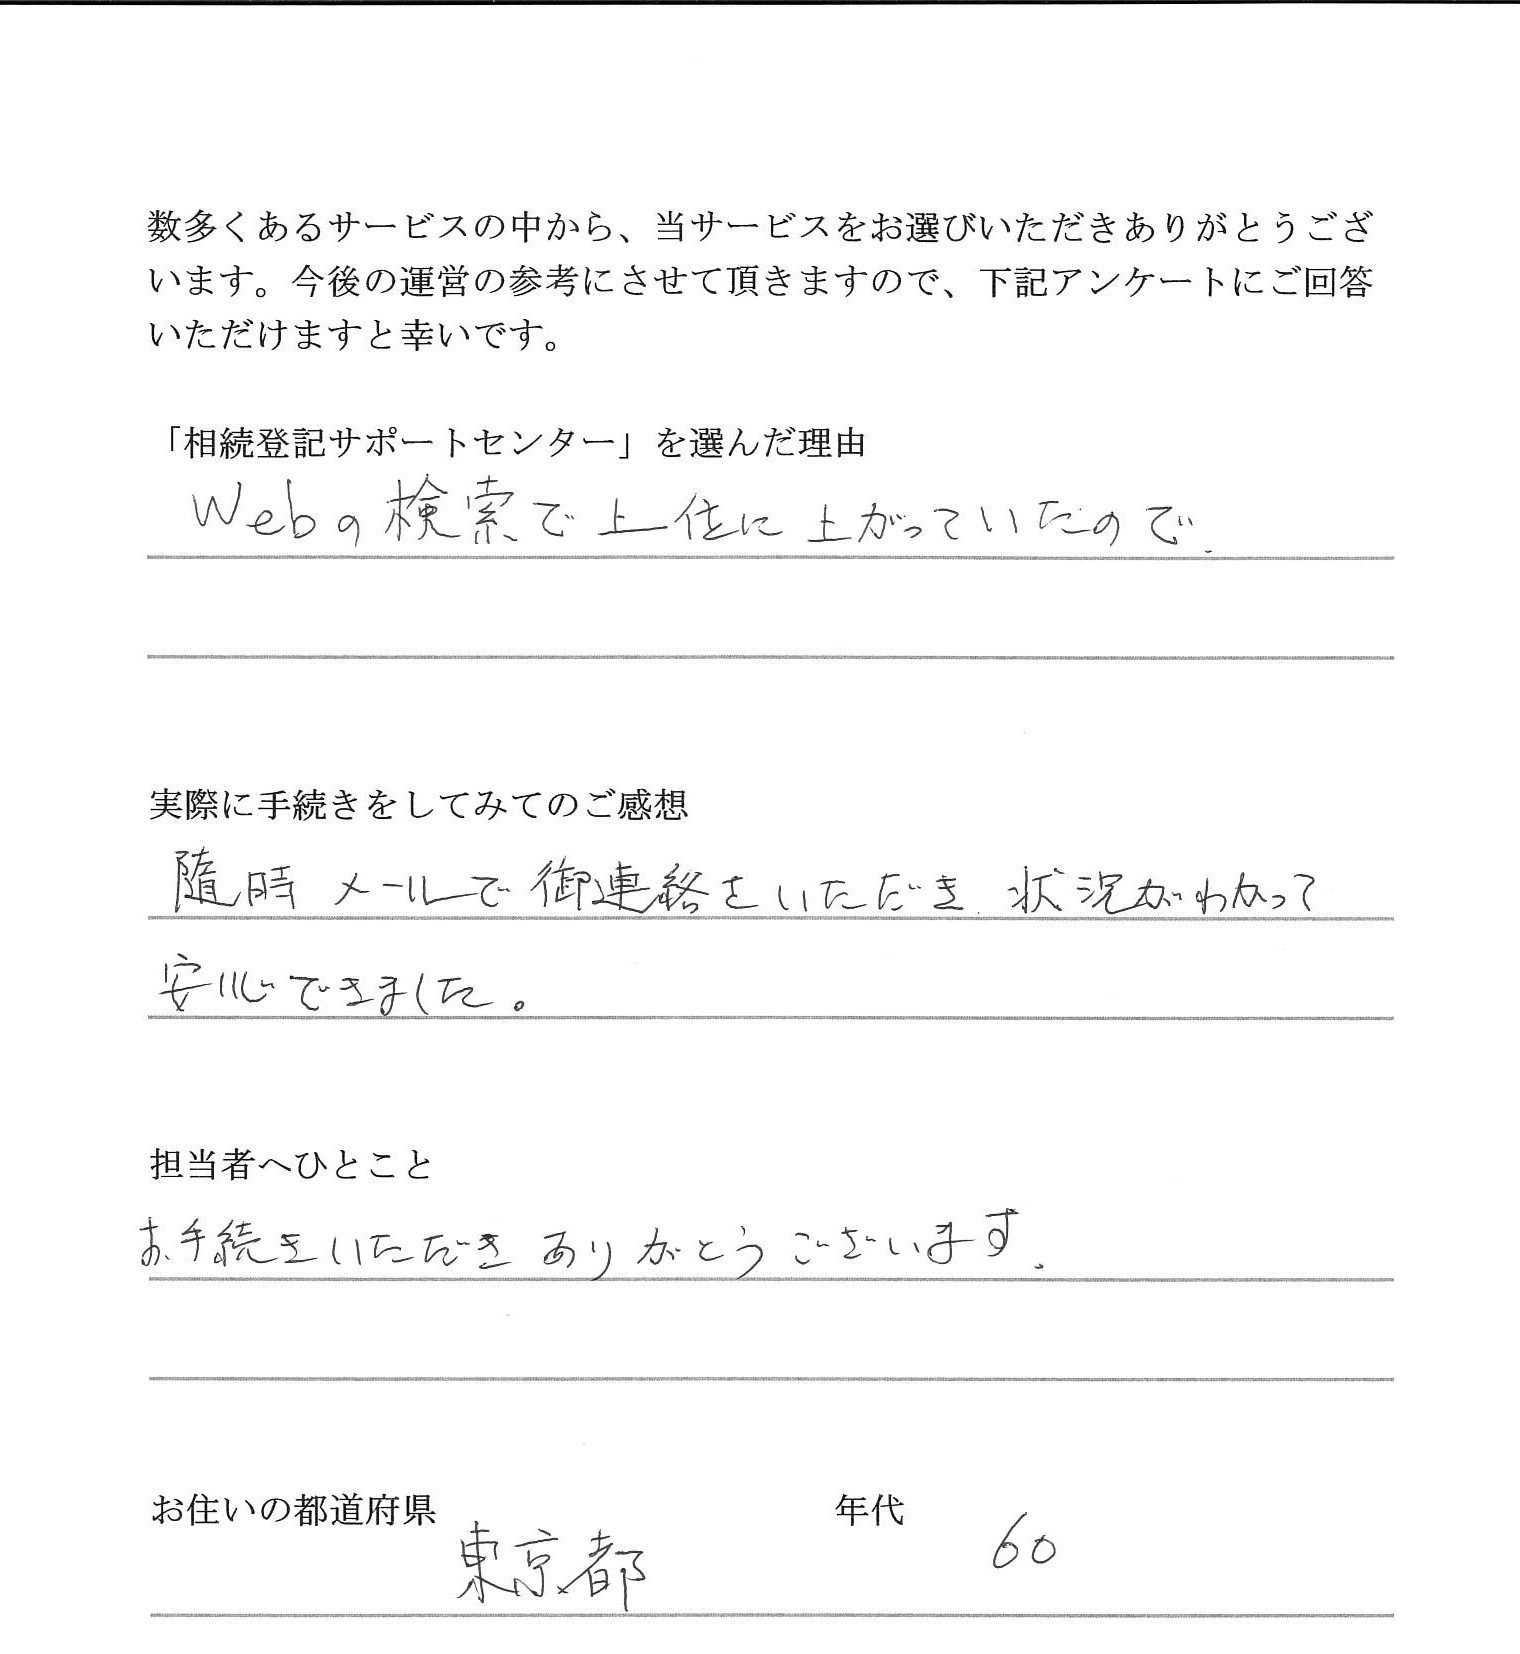 数多くあるサービスの中から、当サービスをお選びいただきありがとうござ
います。今後の運営の参考にさせて頂きますので、下記アンケートにご回答
いただけますと幸いです。
「相続登記サポートセンター」を選んだ理由
Webの検索で上位に上がっていたので.
実際に手続きをしてみてのご感想
随時メールで御連絡をいただき.状況がわかって
安心できました。
担当者へひとこと
お手続きいただきありがとうございます.
お住いの都道府県 東京都 年代 60